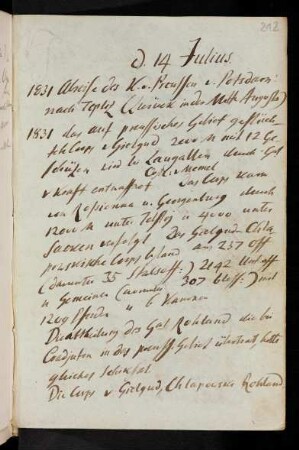 212
d. 14 Julius.
1831 Abreise des K. v. Preussen v. Potsdam
nach Teplitz
1831 das auf preussisches Gebiet geflüch-
te Corps v Gielgud 2000 M mit 12 Ge-
schützen wird bey Langallen durch Gnl
v Krafft entwaffnet Das Corps kam
von Rossienna u. Georgenburg durch
12000 M unter Tolstoj u 4000 unter
Sacken verfolgt Das Gielgud Chla-
powskische Corps bestand aus 237 Off
(darunter 35 Stabsoff.) 2142 Untoff
u Gemeinen (darunter 307 bless.) mit
1209 Pferden u 6 Kanonen
Die Abtheilung des Gnl Rohland die bei
Coadjuten in das preuss Gebiet übertrat, hatte
gleiches Schicksal
Die Corps v Gielgud, Chlapowski Rohland